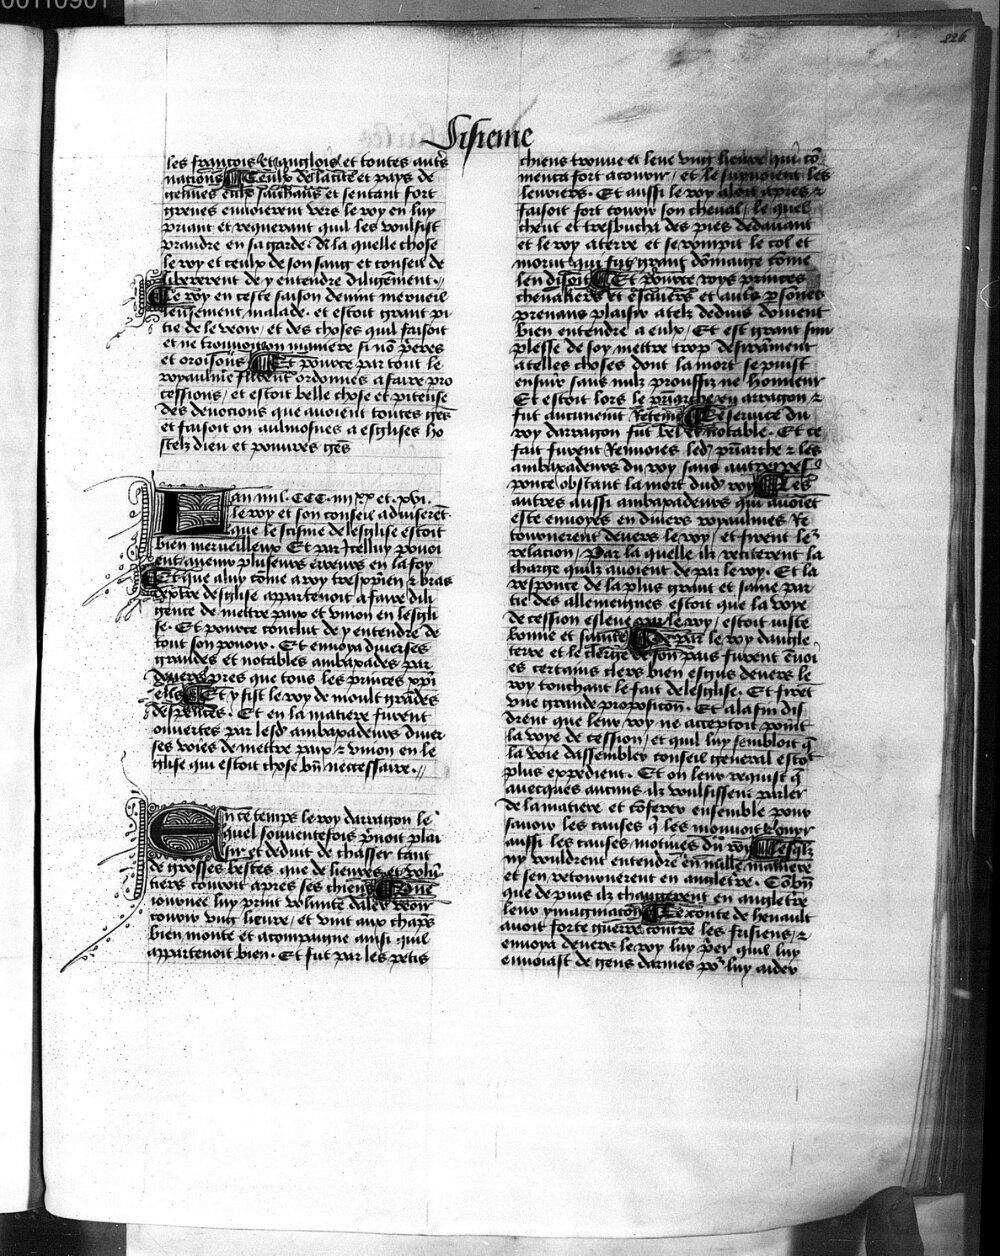 00110901
226
Sisieme
les francois et anglois et toutes autres
nacions Ceulx de la cite et pays de
gennes eulx sachans et sentant fort
greues enuoierent vers le roy en luy
priant et requerant quil les voulsist
prandre en sa garde. A la quelle chose
le roy et ceulx de son sang et conseil de
libererent de y entendre diligement.
Le roy en ceste saison deuint merueil
leusement malade. et estoit grant pi
tie de le veoir, et des choses quil faisoit
et ne trouuoit on maniere si nō p̄eres
et oroisons Et pource par tout le
royaulme furent ordonnes a faire pro
cessions, et estoit belle chose et piteuse
des deuocions que auoient toutes gēs
et faisoit on aulmosnes a esglises ho
stelz dieu et poures gēs
Lan mil. CCC. iiii xx et. xvi.
le roy et son conseil aduiserēt
que le scisme de lesglise estoit
bien merueilleux Et par Icelluy pouoi
ent auenir pluseurs erreurs en la foy
Et que a luy cōme a roy trespxien & bras
dextre desglise appartenoit a faire dili
gence de mettre paix et vnion en lesgli
se. Et pource conclut de y entendre de
tout son pouoir. Et enuoya diuerses
grandes et notables ambaxades par
deuers pres que tous les princes xp̄i
ens Et y fist le roy de moult grādes
despences. Et en la matiere furent
ouuertes par lesd ambaxadeurs diuer
ses voies de mettre paix & vnion en le
sglise qui estoit chose bn̄ necessaire.
En ce temps le roy darragon le
quel souuentefois p̄noit plai
sir et deduit de chasser tant
de grosses bestes que de lieures et volū
tiers couroit apres ses chiens Une
iournee luy print volunte daler veoir
courir vng lieure, et vint aux chāps
bien monte et acompaigne ainsi quil
appartenoit bien. Et fut par les petis
chiens trouue et leue vng lieure qui cō
menca fort a courir, et le suyuoient les
leuriers. Et aussi le roy aloit apres &
faisoit fort courir son cheual, le quel
cheut et tresbucha des pies dedauant
et le roy a terre et se rompit le col et
morut qui fut grant dōmaige cōme
len disoit Et pource roys princes
cheualiers et escuiers et aut̄s p̄sones
prenans plaisir a telz deduis doiuent
bien entendre a eulx, Et est grant sim
plesse de soy mettre trop desirāment
a telles choses dont la mort se puist
ensuir sans nulz prouffiz ne honneur
Et estoit lors le p̄riarche en arragon &
fut aucunemt Retenu Le seruice du
roy darragon fut bel et notable. Et ce
fait furent Renuoies led p̄riarche & les
ambaxadeurs du roy sans autre res
ponce obstant la mort dud roy Les
autres aussi ambaxadeurs qui auoiēt
este enuoyes en diuers royaulmes Re
tournerent deuers le roy, et firent le
relacion, Par la quelle ilz reciterent la
charge quilz auoient de par le roy. Et la
responce de la plus grant et saine par
tie des allemeignes estoit que la voye
de cession esleue par le roy, estoit iuste
bonne et saincte De par le roy dangle
terre et le clerge de son pais furent ēuoi
es certains clers bien esgus deuers le
roy touchant le fait de lesglise. Et firēt
vne grande proposicōn. Et a la fin dis
drent que leur roy ne acceptoit point
la voye de cession, et quil luy sembloit q̄
la voie dassembler conseil general estoit
plus expedient. Et on leur requist q̄
auecques aucuns ilz voulsissent parler
de la matiere et cōferer ensemble pour
sauoir les causes q̄ les mouuoit & ouyr
aussi les causes motiues du roy Lesqlz
ny vouldrent entendre en nulle maniere
et sen retournerent en angleterre. Cōbn̄
que de puis ilz changerent en angletre
leur ymaginacōn Le conte de henault
auoit forte guerre contre les frisiens, &
enuoya deuers le roy luy p̄ey quil luy
enuoiast de gens darmes po luy aider